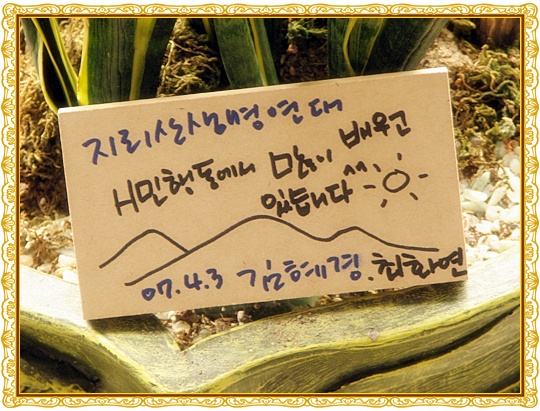 지리산생명연대
시민행동에서 많이 배우고
있습니다^^
07.4.3 김혜경.최화연